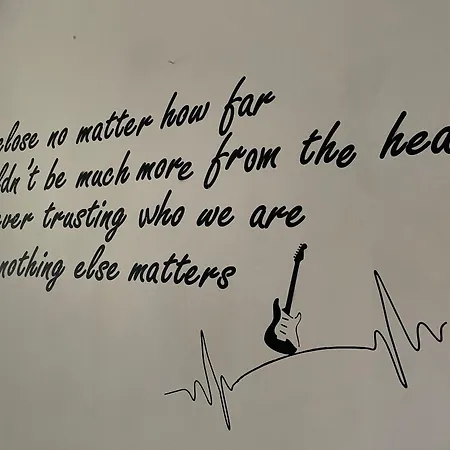 close no matter how far
ldn't be much more from the hea
ver trusting who we are
nothing else matters